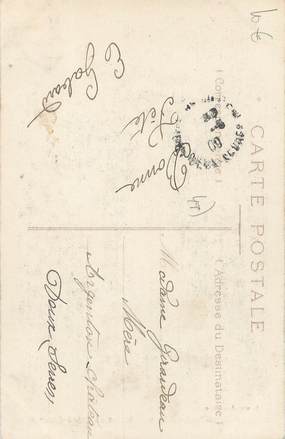 CARTE POSTALE
( Correspondance )
( Adresse du Destinataire )
Bonne
Fête
Madame Girardeau
Mère
Argenton Château
Deux Sèvres